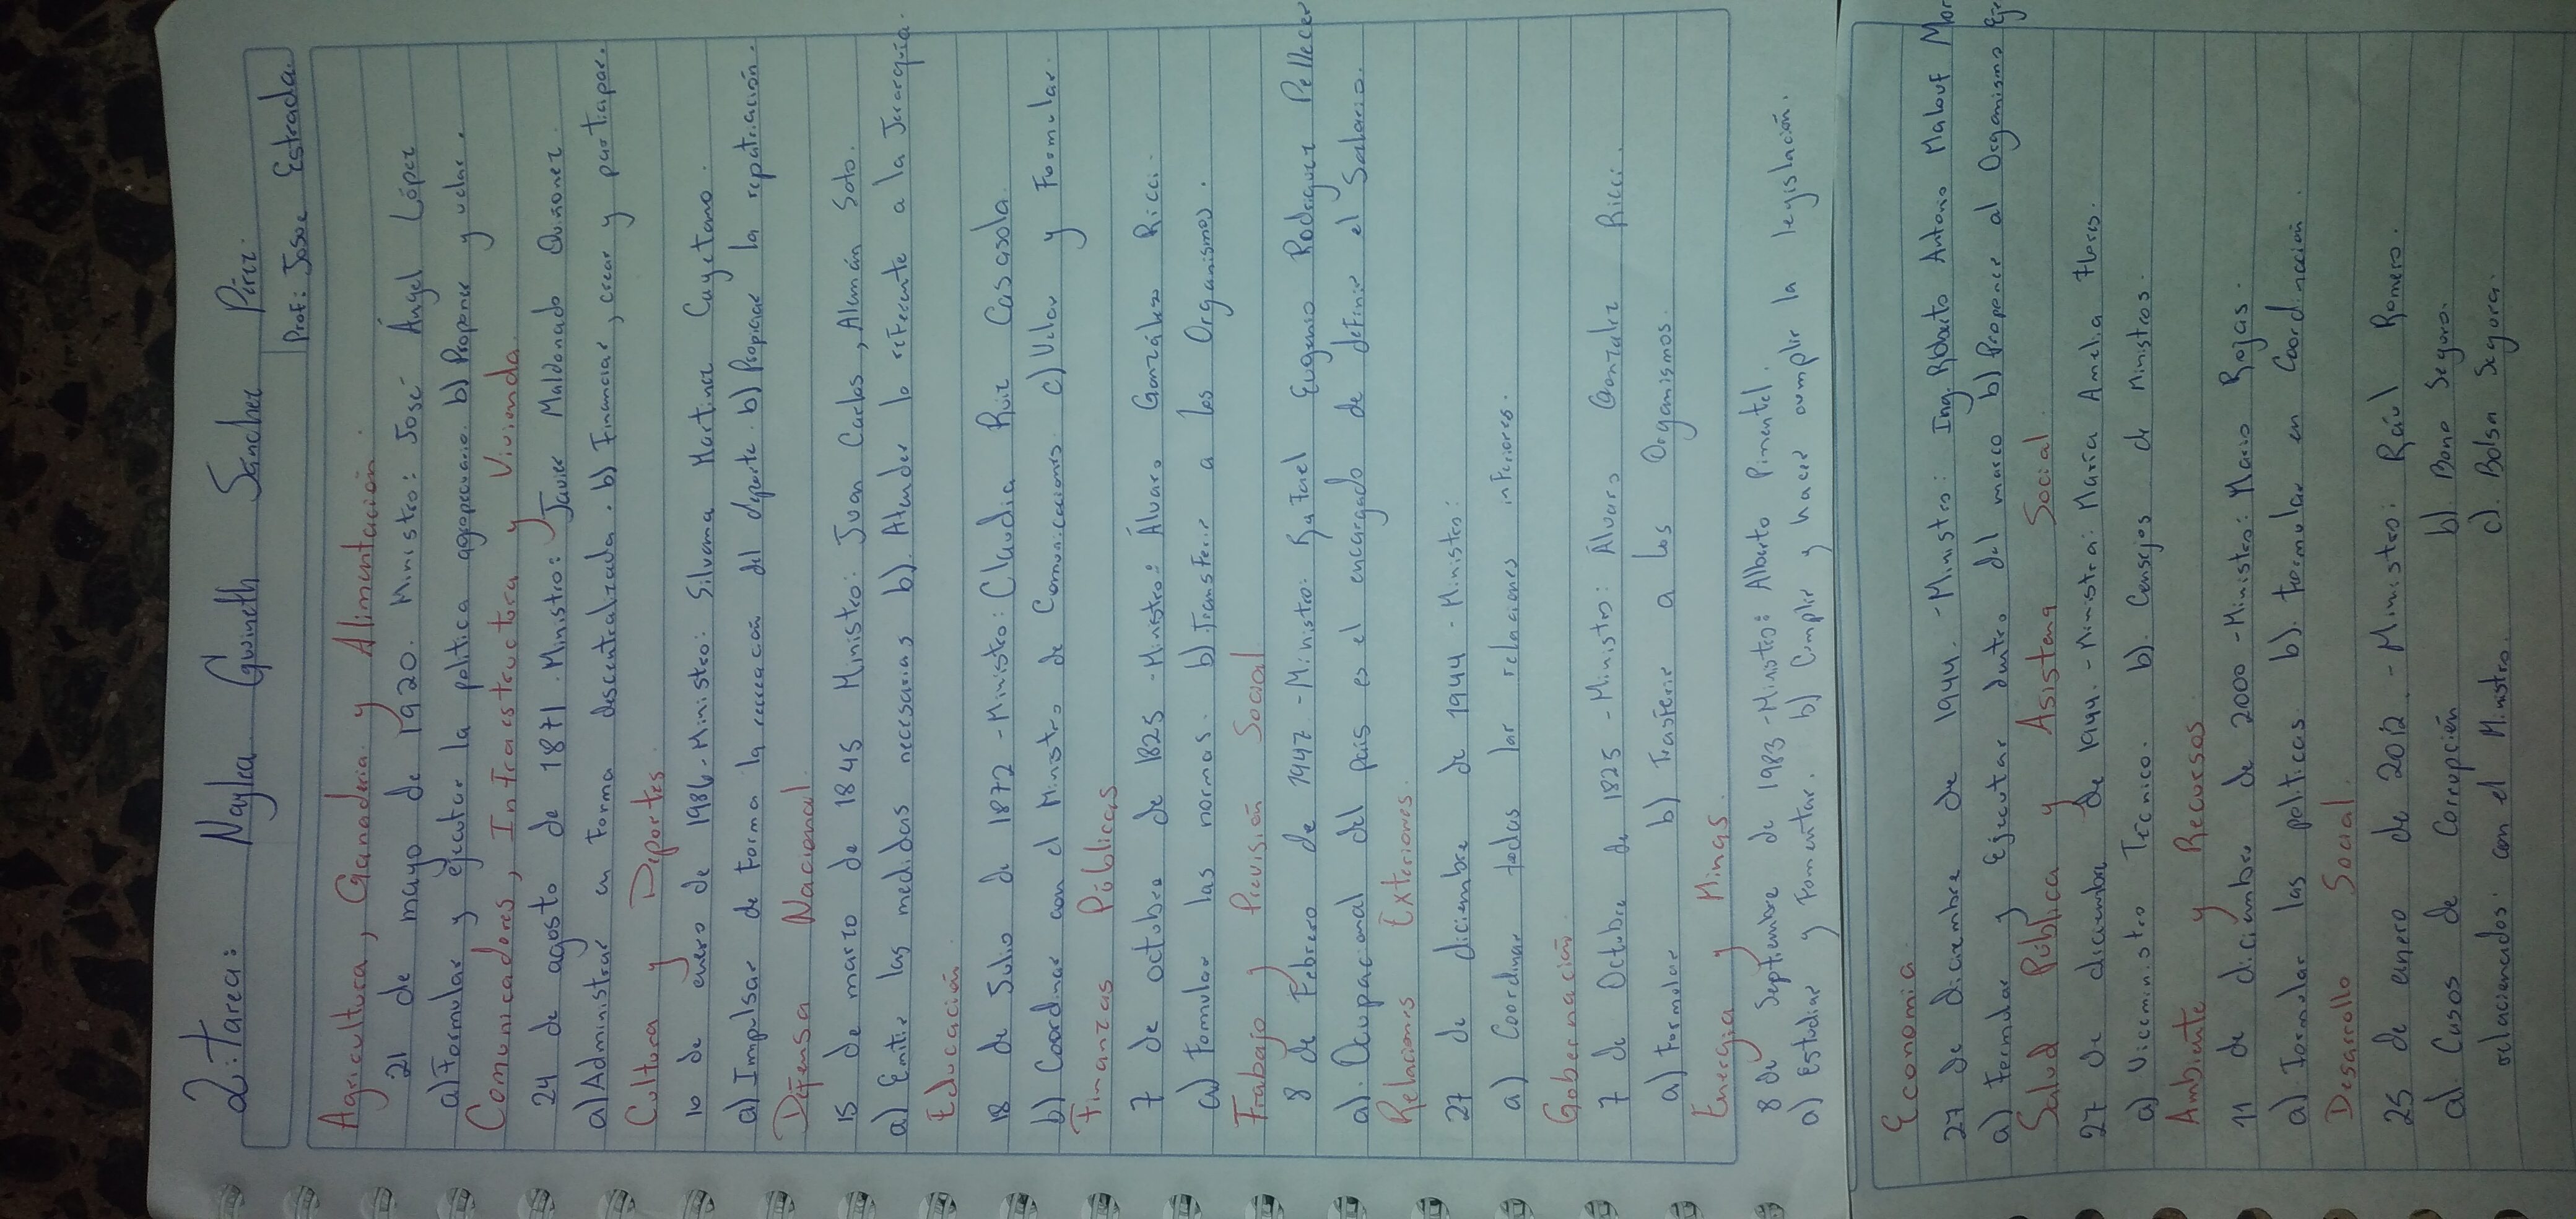 2.: Tarea: Naylea Gwineth Sánchez Pírir.
Prof: Josue Estrada.
Agricultura, Ganaderia y Alimentación.
21 de mayo de 1920. Ministro: José Ángel López
a) Formular y ejecutar la política agropecuario. b) Proponer y velar.
Comunicadores, Infraestructura y Vivienda.
24 de agosto de 1871. Ministro: Javier Maldonado Quiñonez.
a) Administrar en forma descentralizada. b) Financiar, crear y partiapar.
Cultura y Deportes
10 de enero de 1986. Ministro: Silvana Martinez Cayetano.
a) Impulsar de forma la recreación del deporte. b) Propiciar la repatriación.
Defensa Nacional.
15 de marzo de 1845 Ministro: Juan Carlos, Alemán Soto.
a) Emitir las medidas necesarias b). Atender lo referente a la Jerarquía.
Educación.
18 de Julio de 1872 - Ministro: Claudia Ruiz Casasola.
b) Coordinar con el Ministro de Comunicaciones. c) Velar y Formular.
Finanzas Públicas
7 de octubre de 1825 - Ministro: Álvaro González Ricci.
a) Formular las normas. b) Transferir a los Organismos.
Trabajo y Previsión Social
8 de Febrero de 1947 - Ministro: Rafael Eugenio Rodriguez Pellecer
a). Ocupacional del país es el encargado de definir el Salario.
Relaciones Exteriores.
27 de diciembre de 1944 - Ministro:
a) Coordinar todas lar relaciones inferiores.
Gobernación.
7 de Octubre de 1825 - Ministro: Álvaro Gonzalez Ricci.
a) Formular b) Trasferir a los Organismos.
Energia y Minas.
8 de Septiembre de 1983 - Ministro: Alberto Pimentel.
a) Estudiar y Fomentar. b) Cumplir y hacer cumplir la legislación.
Economia.
27 de diciembre de 1944. - Ministro: Ing. Roberto Antonio Malouf Mor
a) Formular y Ejecutar dentro del marco b) Proponer al Organismo Eje
Salud Pública y Asistena Social.
27 de diciembre de 1944. - Ministra: María Amelia Flores.
a) Viceministro Técnico. b). Consejos de Ministros.
Ambiente y Recursos.
11 de diciembre de 2000 - Ministro: Mario Rojas.
a) Formular las politicas. b). formular en Coordinación.
Desarrollo Social.
25 de enero de 2012. - Ministro: Raúl Romero.
a). Casos de Corrupción b). Bono Seguro.
relacionados con el Ministro. c). Bolsa Segura.